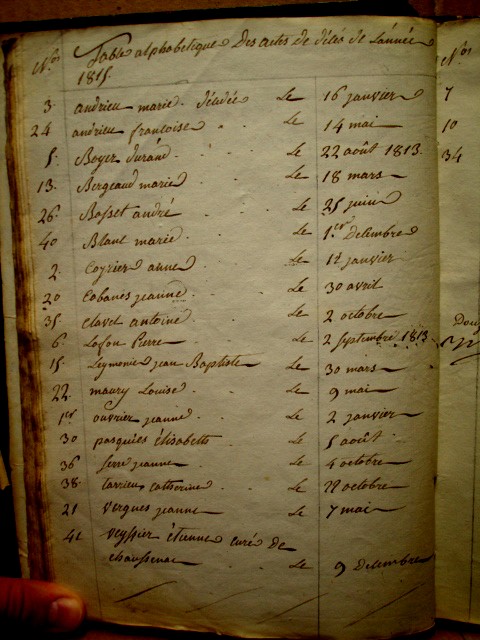 Nos Table alphabetique Des actes de décés de L'année
1815.
3 andrieu marie. décédée Le 16 janvier
24 andrieu francoise Le 14 mai
5. Boyer durand Le 22 août 1813.
13. Bergeaud marie Le 18 mars
26. Bosset andré Le 25 juin
40 Blanc marie Le 1er décembre
2. Coyrier anne Le 12 janvier
20 Cabanes jeanne Le 30 avril
35 clavel antoine Le 2 octobre
6. Lafon Pierre Le 2 septembre 1813.
15. Leymonie jean Baptiste Le 30 mars
22 maury Louise Le 9 mai
1er ouvrier jeanne Le 2 janvier
30 pasquiés élisabette Le 5 août
36 serre jeanne Le 4 octobre
38. tarrieu catherine Le 22 octobre
21 vergues jeanne Le 7 mai
41 veyssier étienne curé de
chaussenac Le 9 decembre
Nos
7
10
34